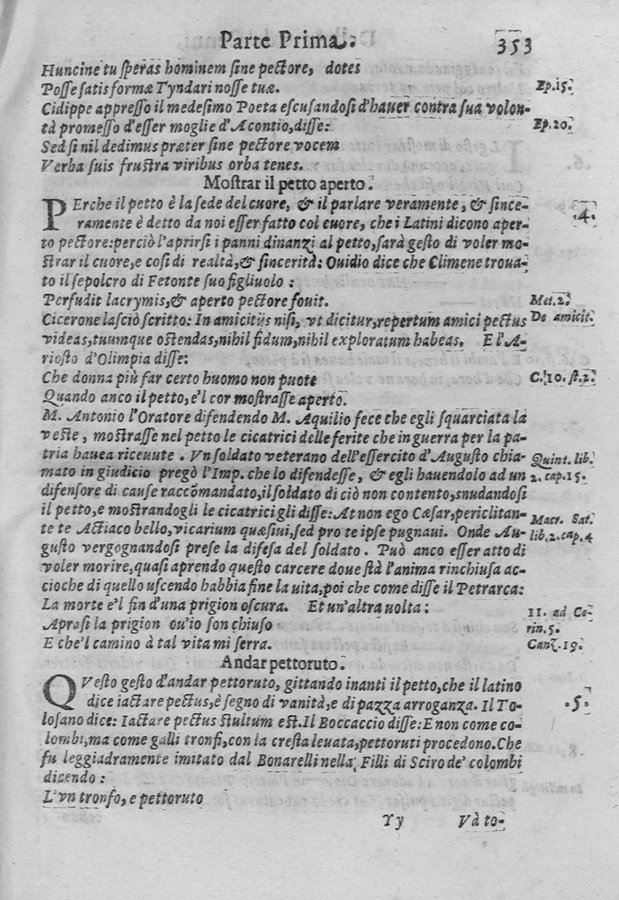 Parte Prima. 353
Huncine tu ſperas hominem ſine pectore, dotes
Poſſe ſatis formæ Tyndari noſſe tuæ. Ep. 15.
Cidippe appreſſo il medeſimo Poeta eſcuſandoſi d'hauer contra ſua volon-
tà promeſſo d'eſſer moglie d'Acontio, diſſe: Ep. 20.
Sed ſi nil dedimus præter ſine pectore vocem
Verba ſuis fruſtra viribus orba tenes.
Moſtrar il petto aperto.
PErche il petto è la ſede del cuore, & il parlare veramente, & ſince- .4.
ramente è detto da noi eſſer fatto col cuore, che i Latini dicono aper-
to pectore: perciò l'aprirſi i panni dinanzi al petto, ſarà geſto di voler mo-
ſtrar il cuore, e coſi di realtà, & ſincerità: Ouidio dice che Climene troua-
to il ſepolcro di Fetonte ſuo figliuolo:
Perfudit lacrymis, & aperto pectore fouit. Met. 2.
Cicerone laſciò ſcritto: In amicitijs niſi, vt dicitur, repertum amici pectus De amicit.
videas, tuumque oſtendas, nihil fidum, nihil exploratum habeas. E l'A-
rioſto d'Olimpia diſſe:
Che donna più far certo huomo non puote C. 10. ſt. 2.
Quando anco il petto, e'l cor moſtraſſe aperto.
M. Antonio l'Oratore difendendo M. Aquilio fece che egli ſquarciata la
veſte, moſtraſſe nel petto le cicatrici delle ferite che in guerra per la pa-
tria hauea riceuute. Vn ſoldato veterano dell'eſſercito d'Auguſto chia- Quint. lib.
mato in giudicio pregò l'Imp. che lo difendeſſe, & egli hauendolo ad un 2. cap. 15.
difenſore di cauſe raccõmandato, il ſoldato di ciò non contento, ſnudandoſi
il petto, e moſtrandogli le cicatrici gli diſſe: At non ego Cæſar, periclitan- Macr. Sat.
te te Actiaco bello, vicarium quæſiui, ſed pro te ipſe pugnaui. Onde Au- lib. 2. cap. 4
guſto vergognandoſi preſe la difeſa del ſoldato. Può anco eſſer atto di
voler morire, quaſi aprendo queſto carcere doue ſtà l'anima rinchiuſa ac-
cioche di quello uſcendo habbia fine la uita, poi che come diſſe il Petrarca:
La morte e'l fin d'una prigion oſcura. Et un'altra uolta: 11. ad Co-
Apraſi la prigion ou'io ſon chiuſo rin. 5.
E che'l camino à tal vita mi ſerra. Canz. 19.
Andar pettoruto.
QVeſto geſto d'andar pettoruto, gittando inanti il petto, che il latino
dice iactare pectus, è ſegno di vanità, e di pazza arroganza. Il To- .5.
loſano dice: Iactare pectus ſtultum eſt. Il Boccaccio diſſe: E non come co-
lombi, ma come galli tronfi, con la creſta leuata, pettoruti procedono. Che
fu leggiadramente imitato dal Bonarelli nella Filli di Sciro de' colombi
dicendo:
L'vn tronfo, e pettoruto
Yy Và to-